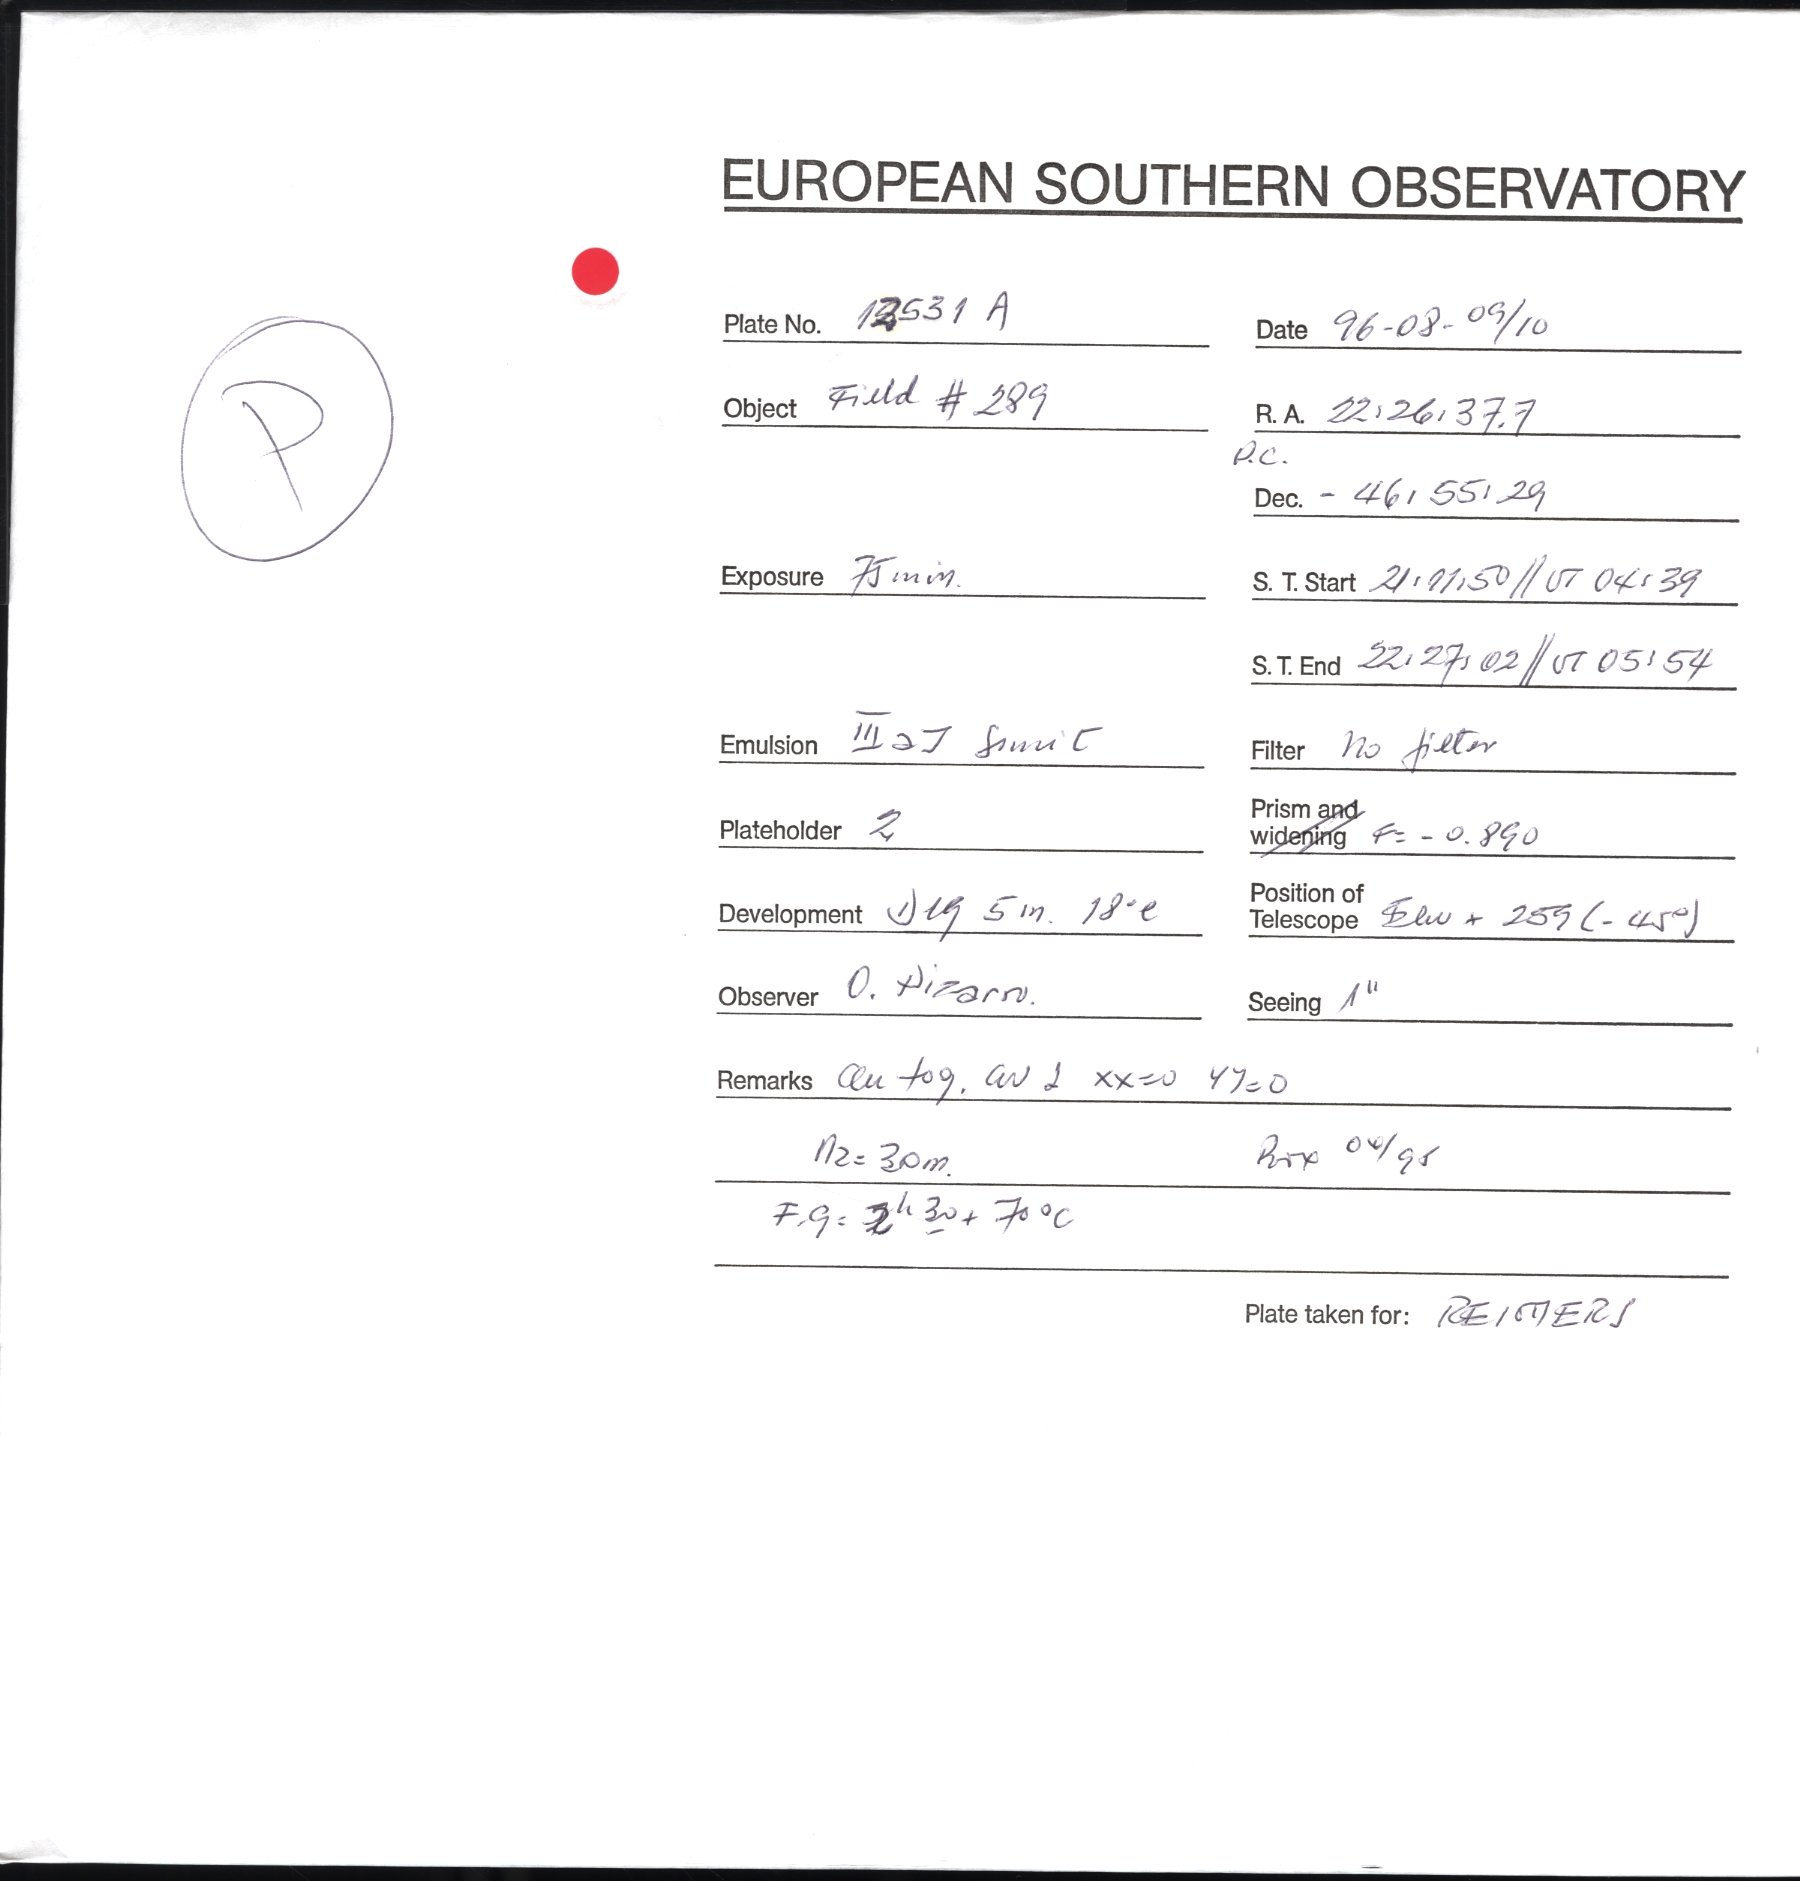 EUROPEAN SOUTHERN OBSERVATORY
Plate No. 12531 A
Date 96-08-09/10
P
Object Field # 289
R. A. 22:26:37.7
P.C.
Dec. - 46:55:29
Exposure 75 min.
S. T. Start 21:11:50 // UT 04:39
S. T. End 22:27:02 // UT 05:54
Emulsion III aJ
Filter No filter
Plateholder 2
Prism and widening F= - 0.890
Development D19 5 m. 18°c
Position of Telescope + 259 (- 45°)
Observer O. Pizarro.
Seeing 1"
Remarks xx=0 yy=0
N2= 30m.
F.G = 2h 30 + 70°C
Plate taken for: REIMERS